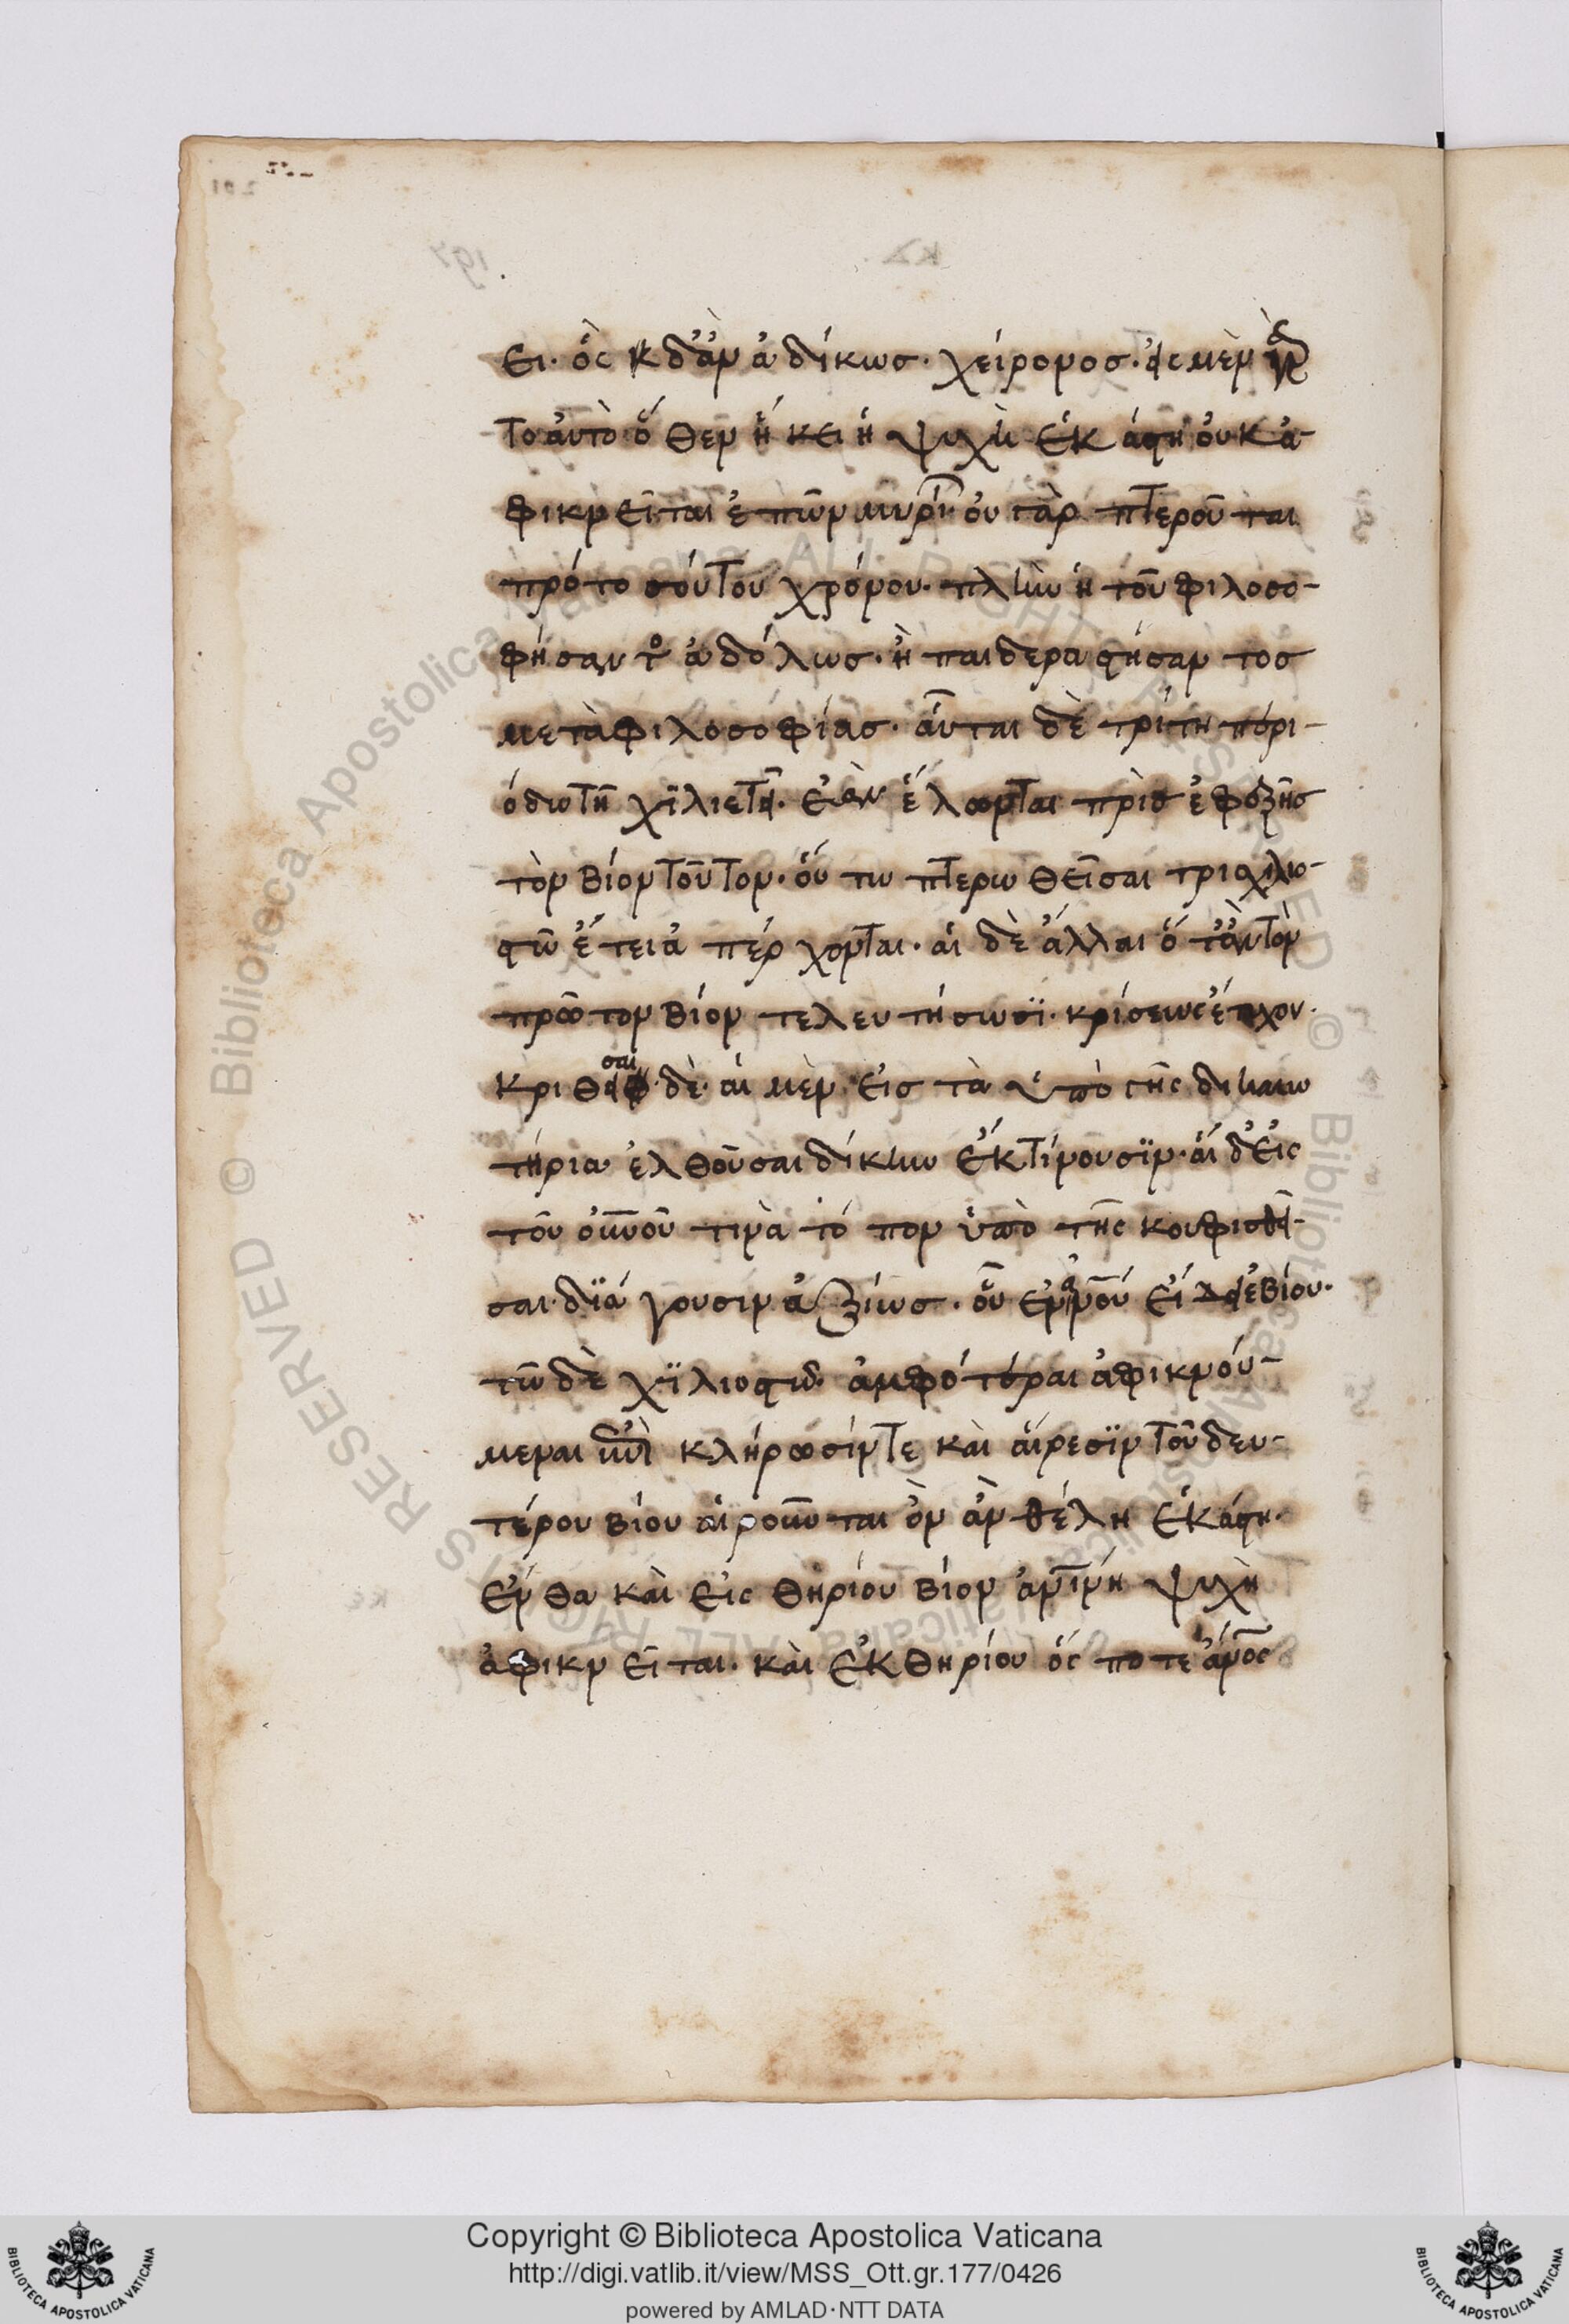 ει· ὃς κ δ' ἂν ἀδίκως· χείρονος· εἰς μὲν γὰρ
το αὐτὸ ὅθεν ἥκει ἡ ψυχὴ ἑκάστη οὐκ ἀ-
φικνεῖται ἐτῶν μυρίων· οὐ γὰρ πτεροῦται
πρὸ τοσούτου χρόνου· πλὴν ἡ τοῦ φιλοσο-
φήσαντος ἀδόλως· ἢ παιδεραστήσαντος
μετὰ φιλοσοφίας· αὗται δὲ τρίτη περι-
όδω τῆ χϊλιετῆ· ἐὰν ἕλωνται τρὶς ἐφεξῆς
τὸν βίον τοῦτον· οὕτω πτερωθεῖσαι τρισχιλιο-
στῶ ἔτει ἀπέρχονται· αἱ δὲ ἄλλαι ὅταν τὸν
πρῶτον βίον τελευτήσωσϊ· κρίσεως ἔτυχον·
κριθεῖσαι δὲ· αἱ μὲν εἰς τὰ ὑπὸ γῆς δικαιω
τήρια ἐλθοῦσαι δίκην ἐκτίνουσϊν· αἱ δ' εἰς
τοῦ οὐνοῦ τινὰ τόπον ὑπὸ τῆς κουφισθεῖ-
σαι· δϊάγουσιν ἀξίως· οὗ ἐν ἀνοῦ εἴδει ἐβίου·
τῶ δὲ χϊλιοστῶ· ἀμφότεραι ἀφικνού-
μεναι ἐπὶ κλήρωσίν τε καὶ αἵρεσϊν τοῦ δευ-
τέρου βίου αἱροῦνται ὃν ἂν θέλη ἑκάστη·
ἔνθα καὶ εἰς θηρίου βίον ἀνινη ψυχὴ
ἀφικνεῖται· καὶ ἐκ θηρίου ὅς ποτε ἄνος
Copyright © Biblioteca Apostolica Vaticana
http://digi.vatlib.it/view/MSS_Ott.gr.177/0426
powered by AMLAD·NTT DATA